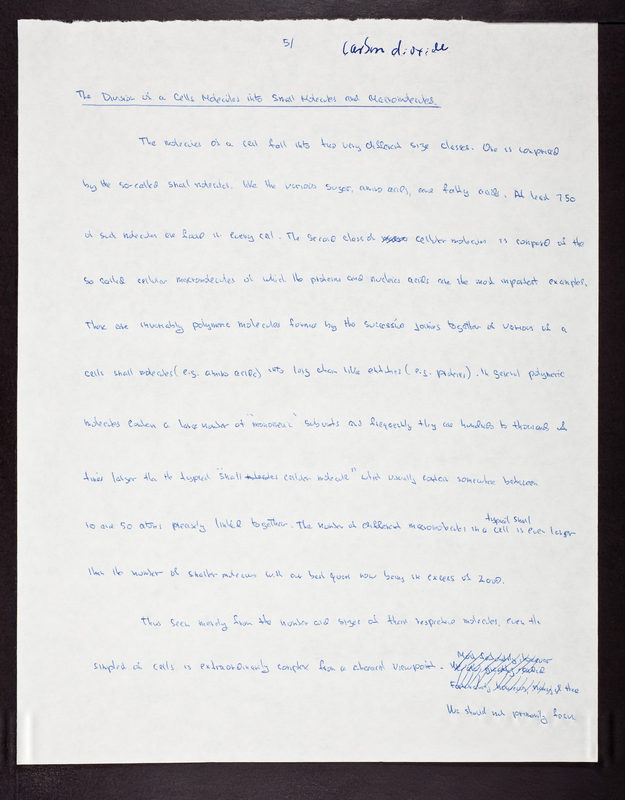 5/
carbon dioxide
The Division of a Cells Molecules into Small Molecules and Macromolecules.
The molecules of a cell fall into two very different size classes. One is comprised
by the so-called small molecules, like the various sugar, amino acids, and fatty acids. At least 750
of such molecules are found in every cell. The second class of cellular molecules is composed of the
so called cellular macromolecules of which the proteins and nucleic acids are the most important examples.
These are invariably polymeric molecules formed by the successive joining together of various of a
cells small molecules (e.g. amino acids) into long chain like entities (e.g. proteins). In general polymeric
molecules contain a large number of "monomeric" subunits and frequently they are hundreds to thousands of
times larger than the typical "small molecules cellular molecule" which usually contain somewhere between
10 and 50 atoms precisely linked together. The number of different macromolecules in a cell is even larger
typical small
than the number of smaller molecules with our best guess now being in excess of 2000.
Thus seen merely from the number and sizes of their respective molecules, even the
simplest of cells is extraordinarily complex from a chemical viewpoint.
Fortunately, however, many of the
We should not primarily focus